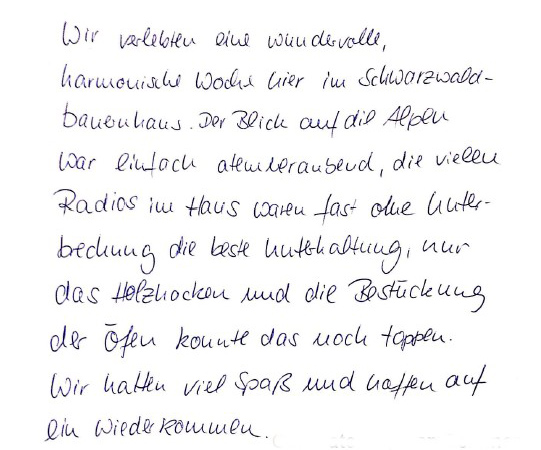 Wir verlebten eine wundervolle,
harmonische Woche hier im Schwarzwald-
bauernhaus. Der Blick auf die Alpen
war einfach atemberaubend, die vielen
Radios im Haus waren fast ohne Unter-
brechung die beste Unterhaltung, nur
das Holzhacken und die Bestückung
der Öfen konnte das noch toppen.
Wir hatten viel Spaß und hoffen auf
ein Wiederkommen.